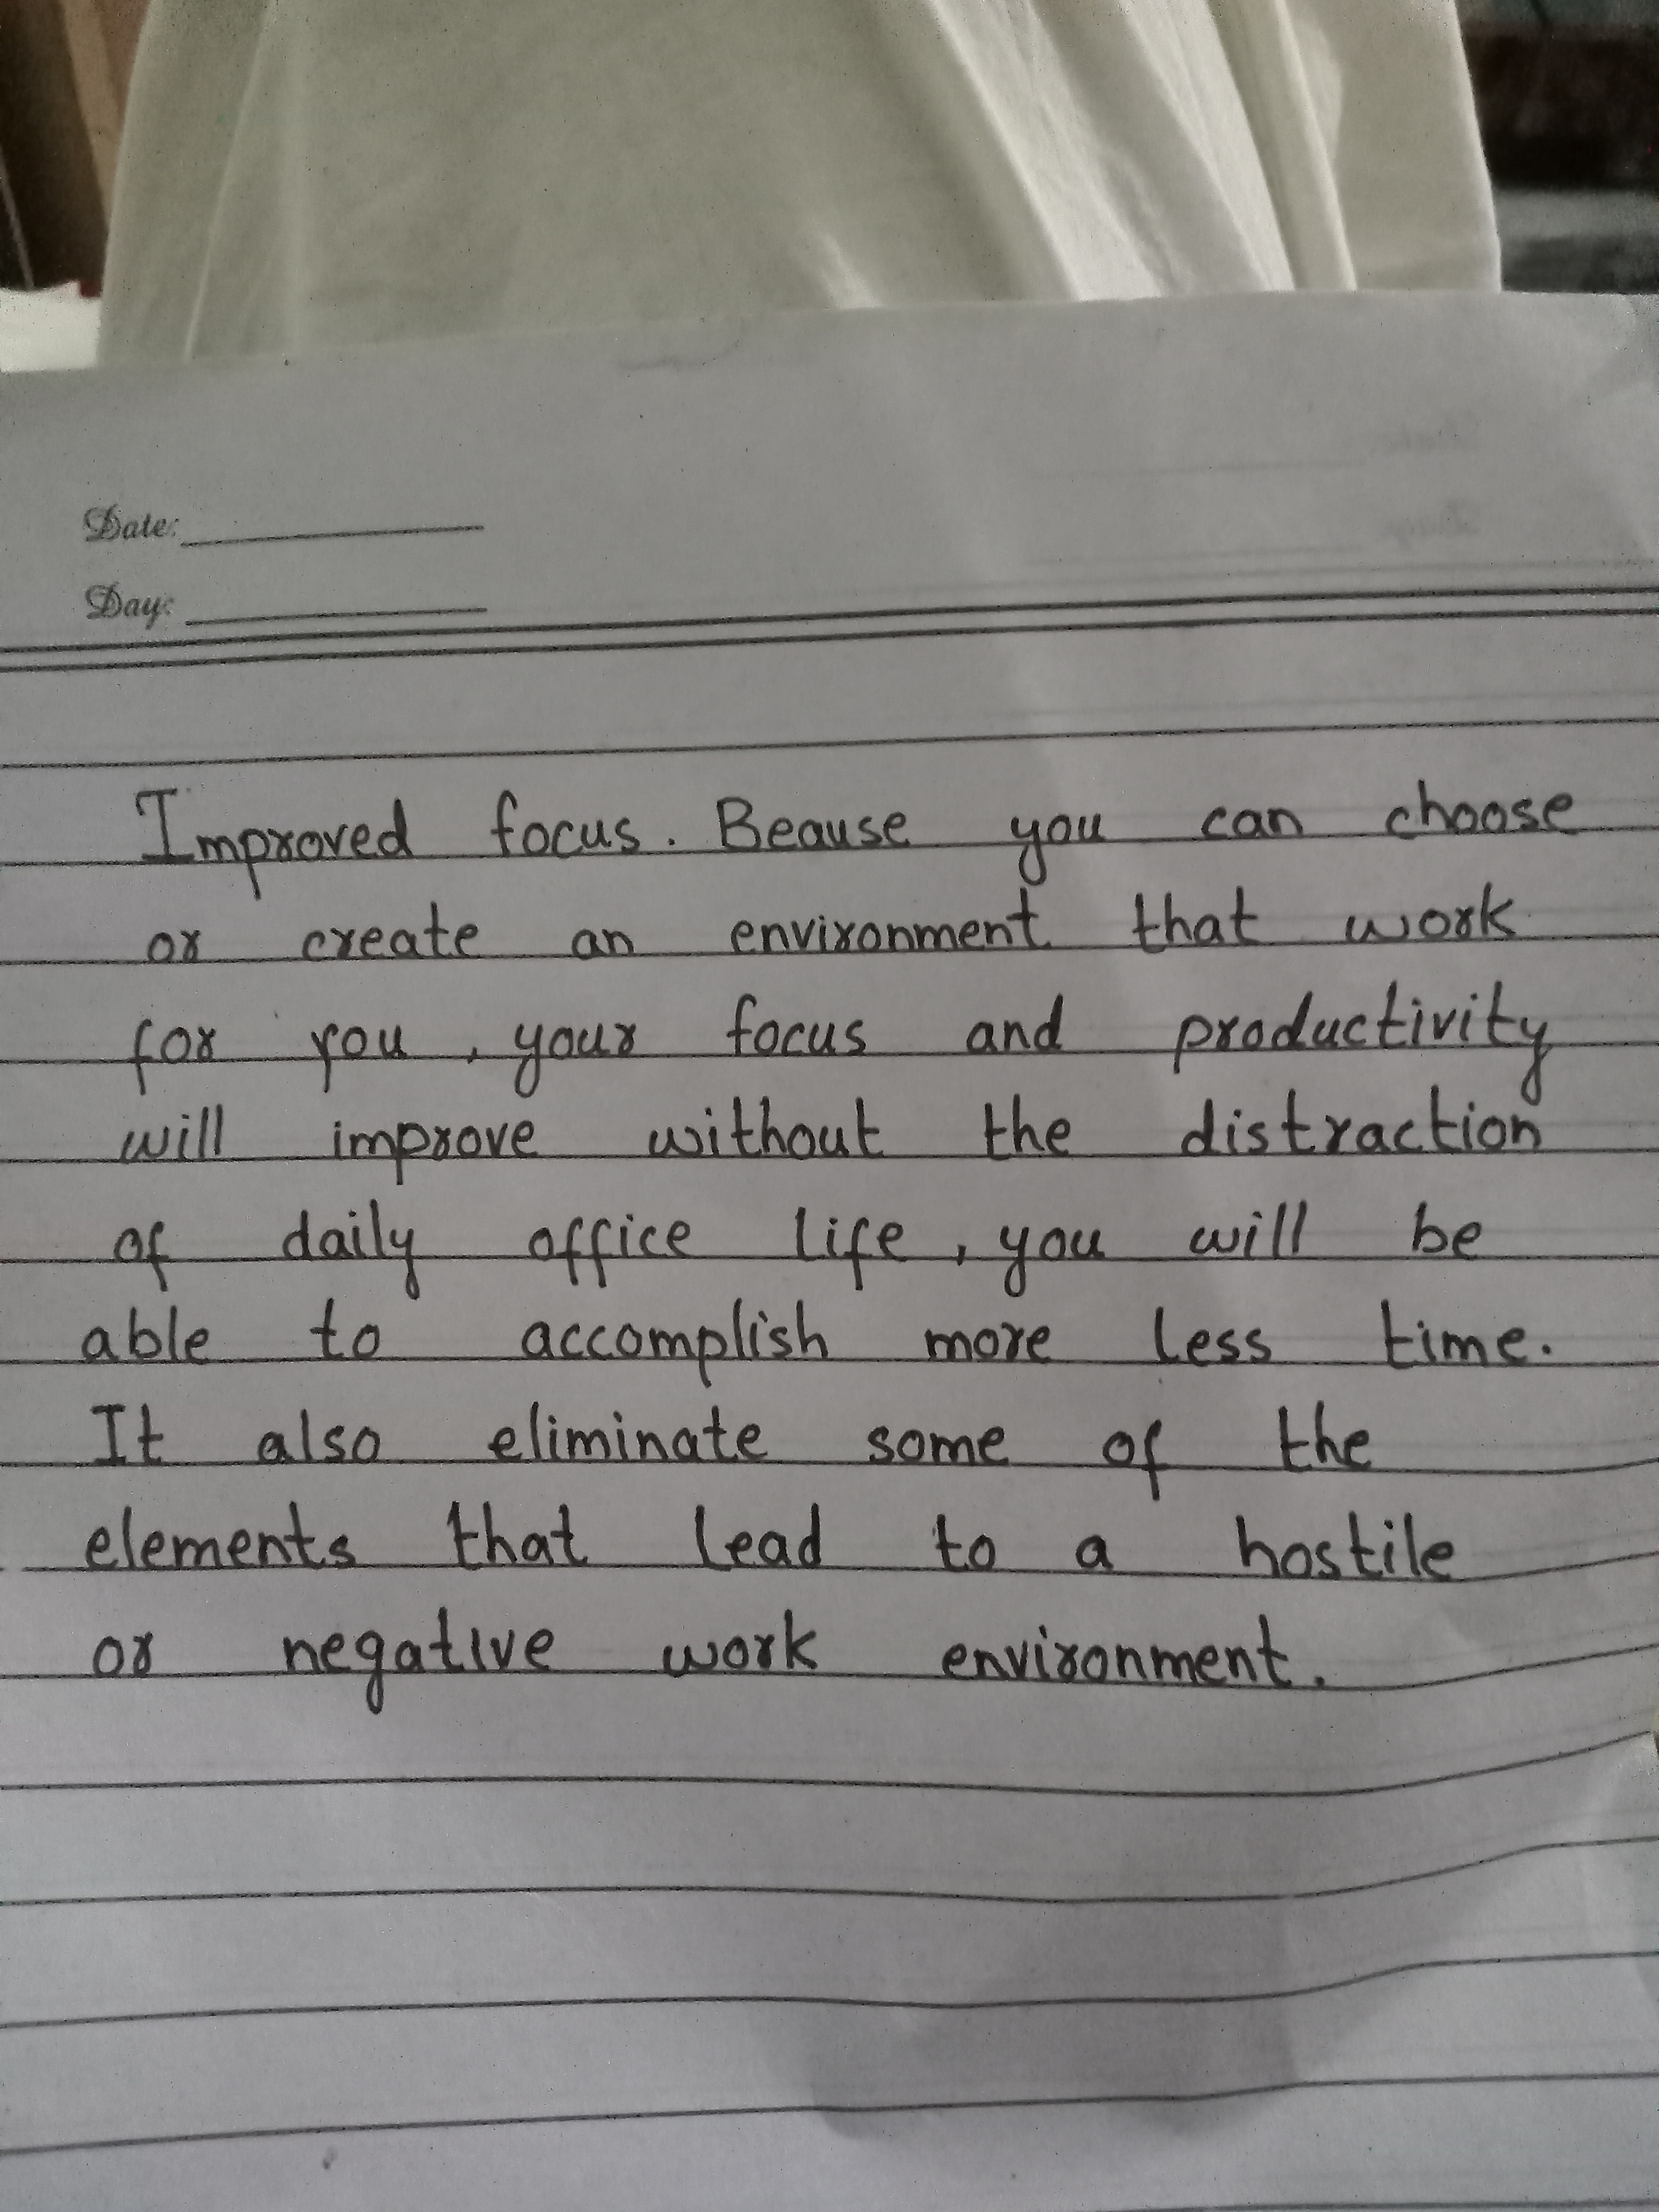 Date:
Day:
Improved focus. Beause you can choose
or create an environment that work
for you, your focus and productivity
will improve without the distraction
of daily office life, you will be
able to accomplish more less time.
It also eliminate some of the
elements that lead to a hostile
or negative work environment.